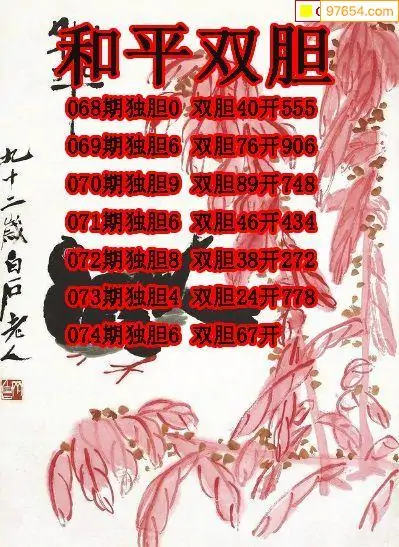 97654.com
和平双胆
068期独胆0 双胆40开555
069期独胆6 双胆76开906
070期独胆9 双胆89开748
071期独胆6 双胆46开434
072期独胆8 双胆38开272
073期独胆4 双胆24开778
074期独胆6 双胆67开
九十二岁白石老人